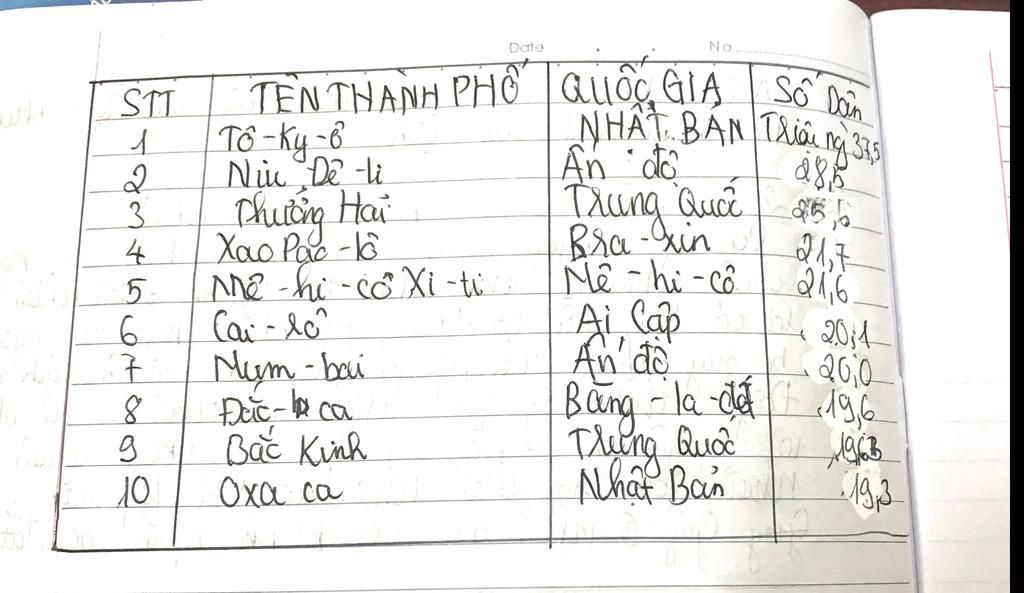 Date No
STT TÊN THÀNH PHỐ QUỐC GIA Số Dân
1 Tô-Ky-ô NHẬT BẢN Triệu ng 37,5
2 Niu Dê-li Ấn độ 28,5
3 Thượng Hải Trung Quốc 25,6
4 Xao Pac-lô Bra-xin 21,7
5 Mê-hi-cô Xi-ti Mê-hi-cô 21,6
6 Cai-rô Ai Cập 20,1
7 Mum-bai Ấn độ 20,0
8 Đắc-ca Băng-la-đét 19,6
9 Bắc Kinh Trung Quốc
10 Oxa ca Nhật Bản 19,3